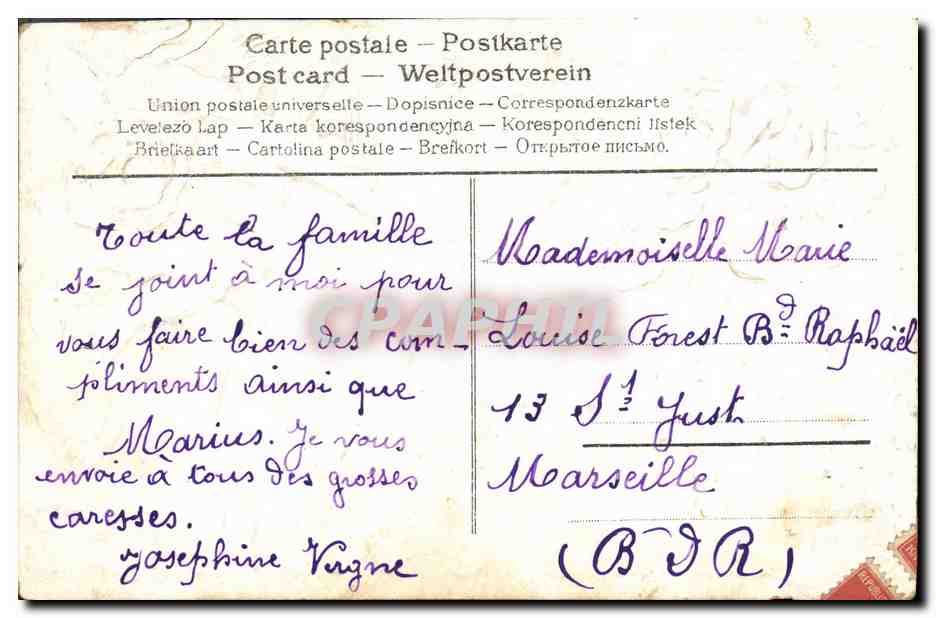 Carte postale — Postkarte
Post card — Weltpostverein
Union postale universelle — Dopisnice — Correspondenzkarte
Levelező Lap — Karta korespondencyjna — Korespondencni listek
Briefkaart — Cartolina postale — Brefkort — Открытое письмо.
Toute la famille
se joint à moi pour
vous faire bien des com-
pliments ainsi que
Marius. Je vous
envoie à tous des grosses
caresses.
Josephine Virgne
Mademoiselle Marie
Louise Forest Bd Raphaël
13 St Just
Marseille
(B D R)
CPAPHIL